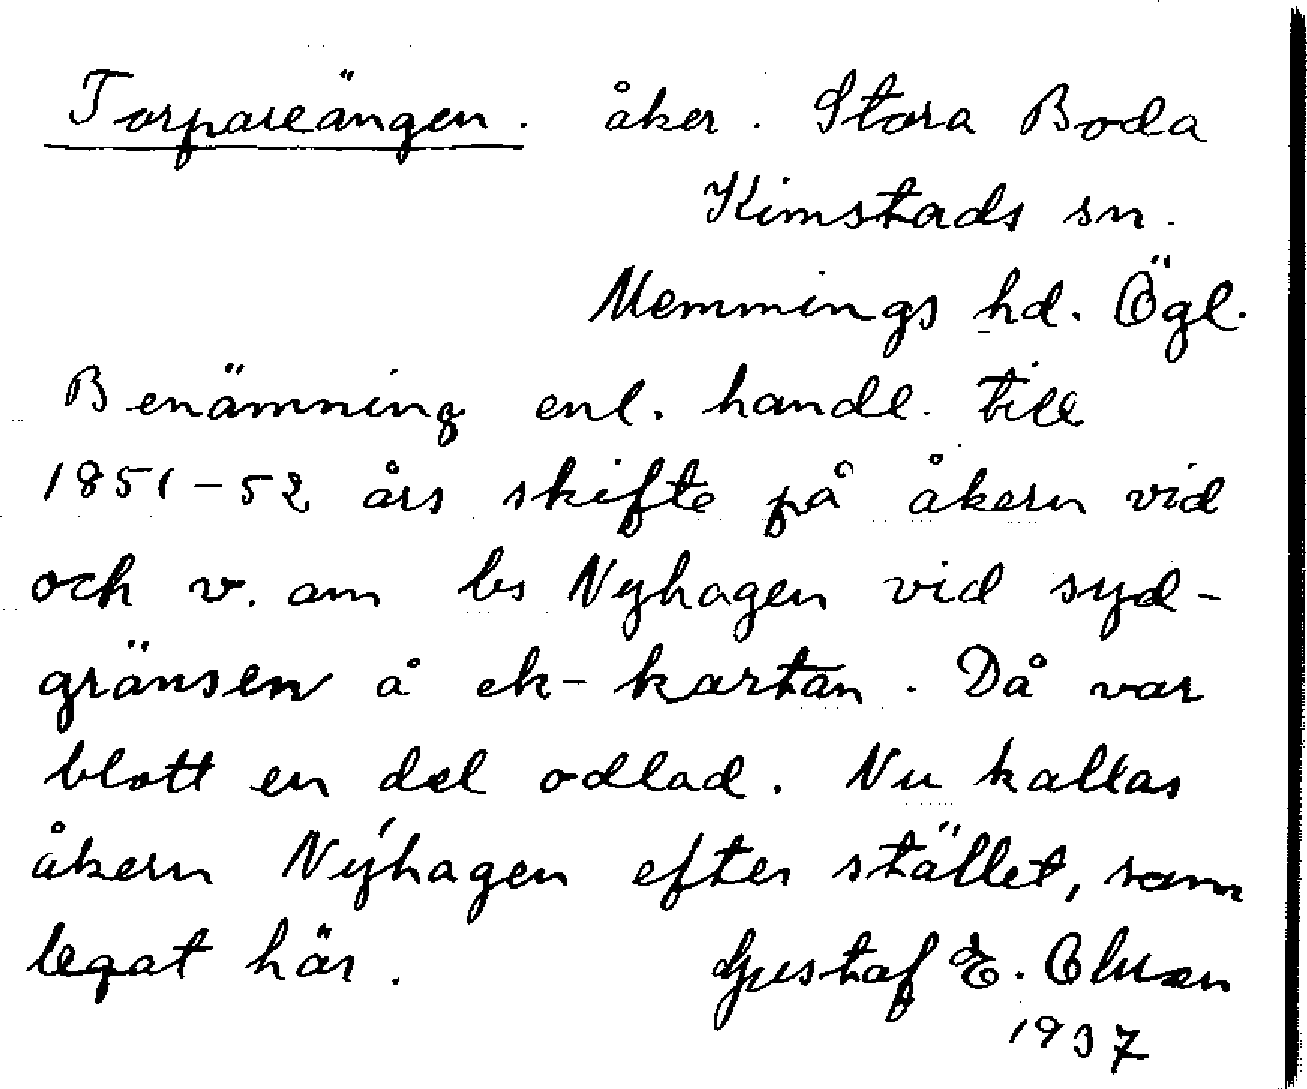 Torpareängen. åker. Stora Boda
Kimstads sn.
Memmings hd. Ögl.
Benämning enl. handl. till
1851-52 års skifte på åkern vid
och v. om ls Nyhagen vid syd-
gränsen å ek-kartan. Då var
blott en del odlad. Nu kallas
åkern Nýhagen efter stället, som
legat här. Gustaf E.
1937